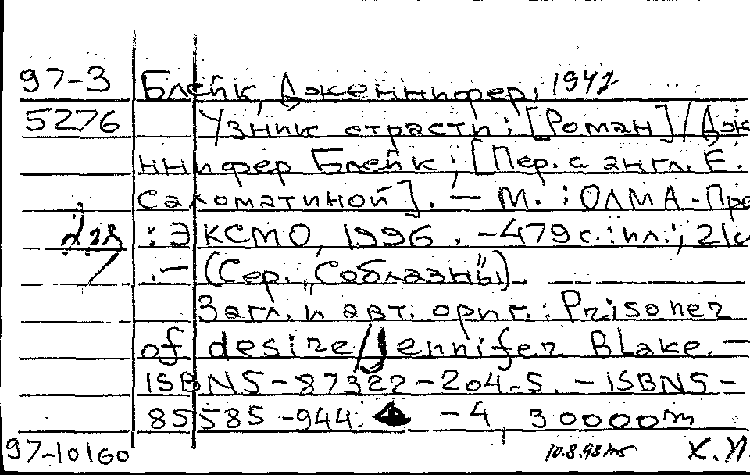 97-3 Блейк, Дженнифер, 1942
5276 Узник страсти: [Роман] / Дже
ннифер Блейк; [Пер. с англ. Е.
Саломатиной]. — М.: ОЛМА-Пре
: ЭКСМО, 1996. — 479 с.: ил.; 21 с
. — (Сер. "Соблазны")
Загл. и авт. ориг.: Prisoner
of desire / Jennifer Blake. —
ISBN 5-87322-204-5. — ISBN 5-
85585-944 -4, 30000
97-10160 Х.Л.